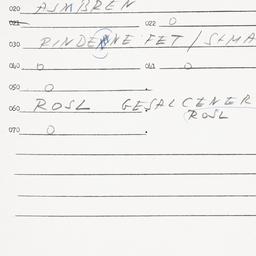 020 ASMBREN
021 022 0
030 RINDENNE FET / SLMA
040 0 041 0
050 0
060 ROSL GESALCENER
ROSL
070 0